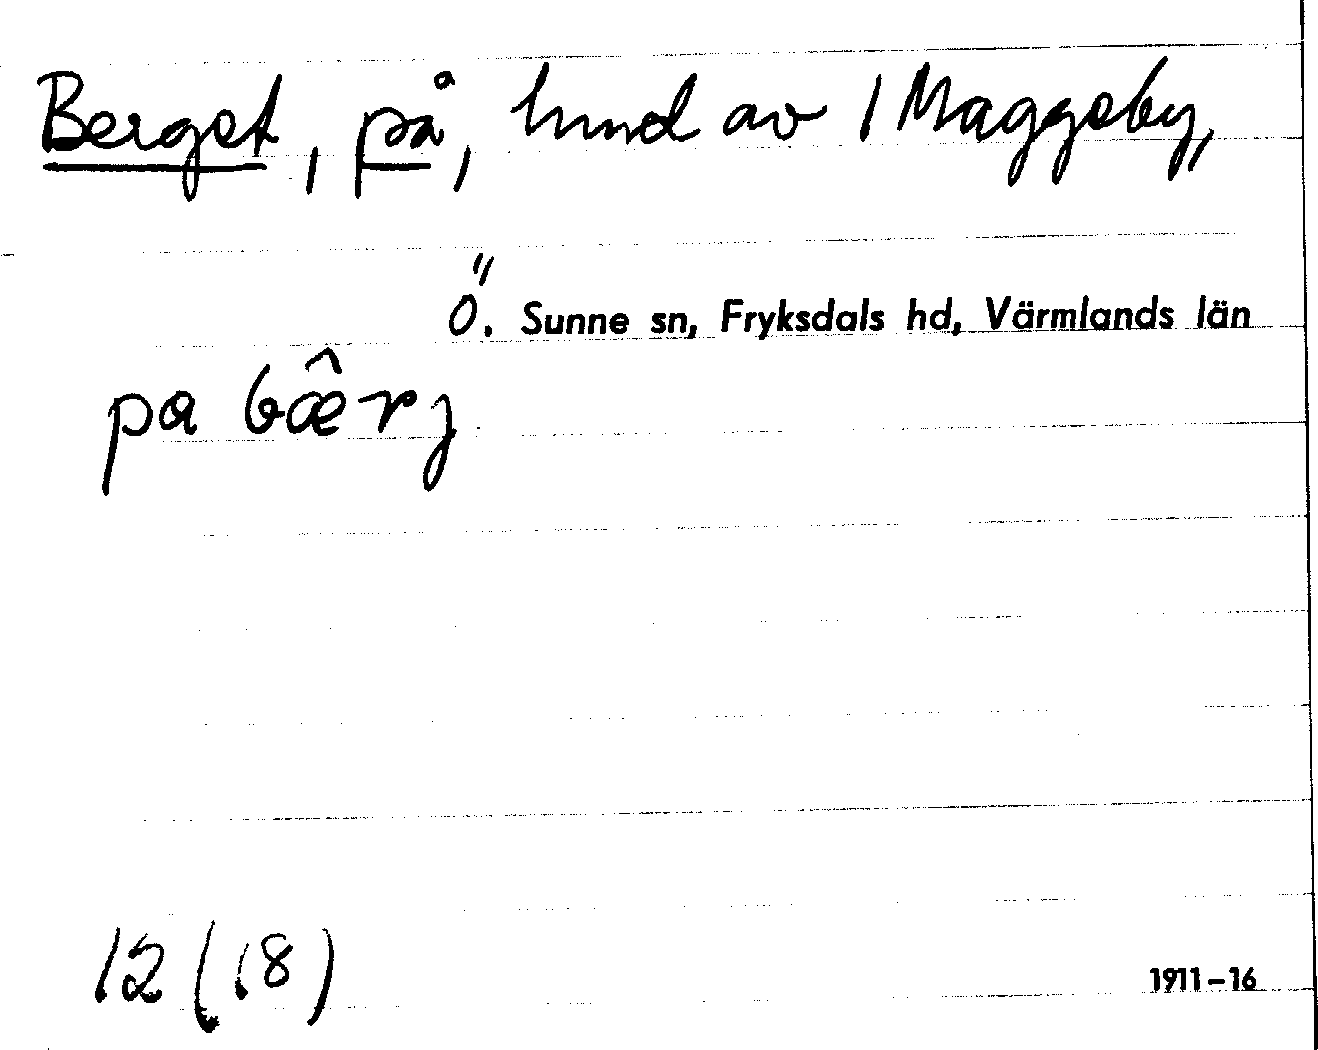 Berget, på, hmd av 1 Maggeby,
Ö. Sunne sn, Fryksdals hd, Värmlands län
pa bæ̂rj
12 (18)
1911–16